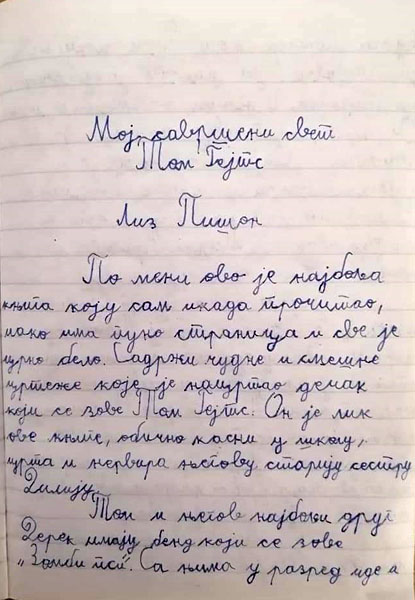 Мој савршени свет
Том Гејтс
Лиз Пишон
По мени ово је најбоља
књига коју сам икада прочитао,
иако има пуно страница и све је
црно бело. Садржи чудне и смешне
цртеже које је нацртао дечак
који се зове Том Гејтс. Он је лик
ове књиге, обично касни у школу,
црта и нервира његову старију сестру
Дилију.
Том и његов најбољи друг
Дерек имају бенд који се зове
„Зомби пси". Са њима у разред иде а